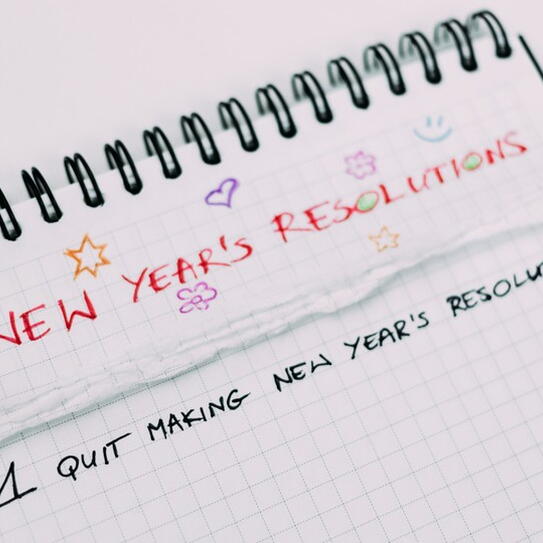 NEW YEAR'S RESOLUTIONS
1 QUIT MAKING NEW YEAR'S RESOLU